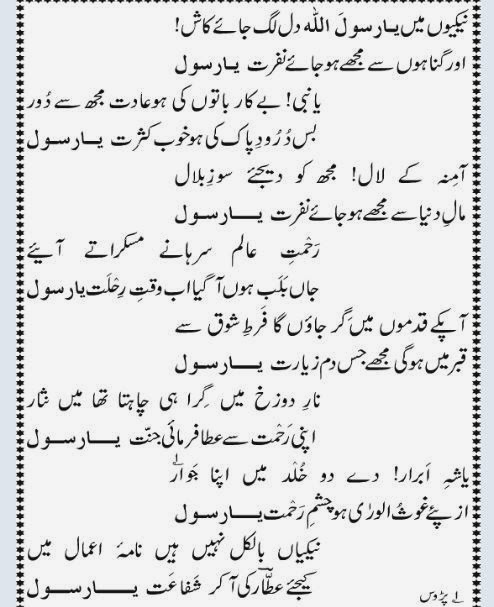 نیکیوں میں یارسولَ اللہ دل لگ جائے کاش!
اور گناہوں سے مجھے ہو جائے نفرت یارسول
یانبی! بے کار باتوں کی ہو عادت مجھ سے دُور
بس دُرُودِ پاک کی ہو خوب کثرت یارسول
آمِنہ کے لال! مجھ کو دیجئے سوزِ بلال
مالِ دنیا سے مجھے ہو جائے نفرت یارسول
رَحْمتِ عالم سرہانے مسکراتے آیئے
جاں بَلَب ہوں آ گیا اب وقتِ رِحْلَت یارسول
آپکے قدموں میں گر جاؤں گا فَرطِ شوق سے
قبر میں ہوگی مجھے جس دم زیارت یارسول
نارِ دوزخ میں گِرا ہی چاہتا تھا میں نثار
اپنی رَحْمت سے عطا فرمائی جنّت یارسول
یاشہِ اَبرار! دے دو خُلْد میں اپنا جَوار۱ؔ
از پئے غوثُ الورٰی ہو چشمِ رَحْمت یارسول
نیکیاں بالکل نہیں ہیں نامۂ اعمال میں
کیجئے عطّارؔ کی آ کر شَفاعَت یارسول
۱ پڑوس